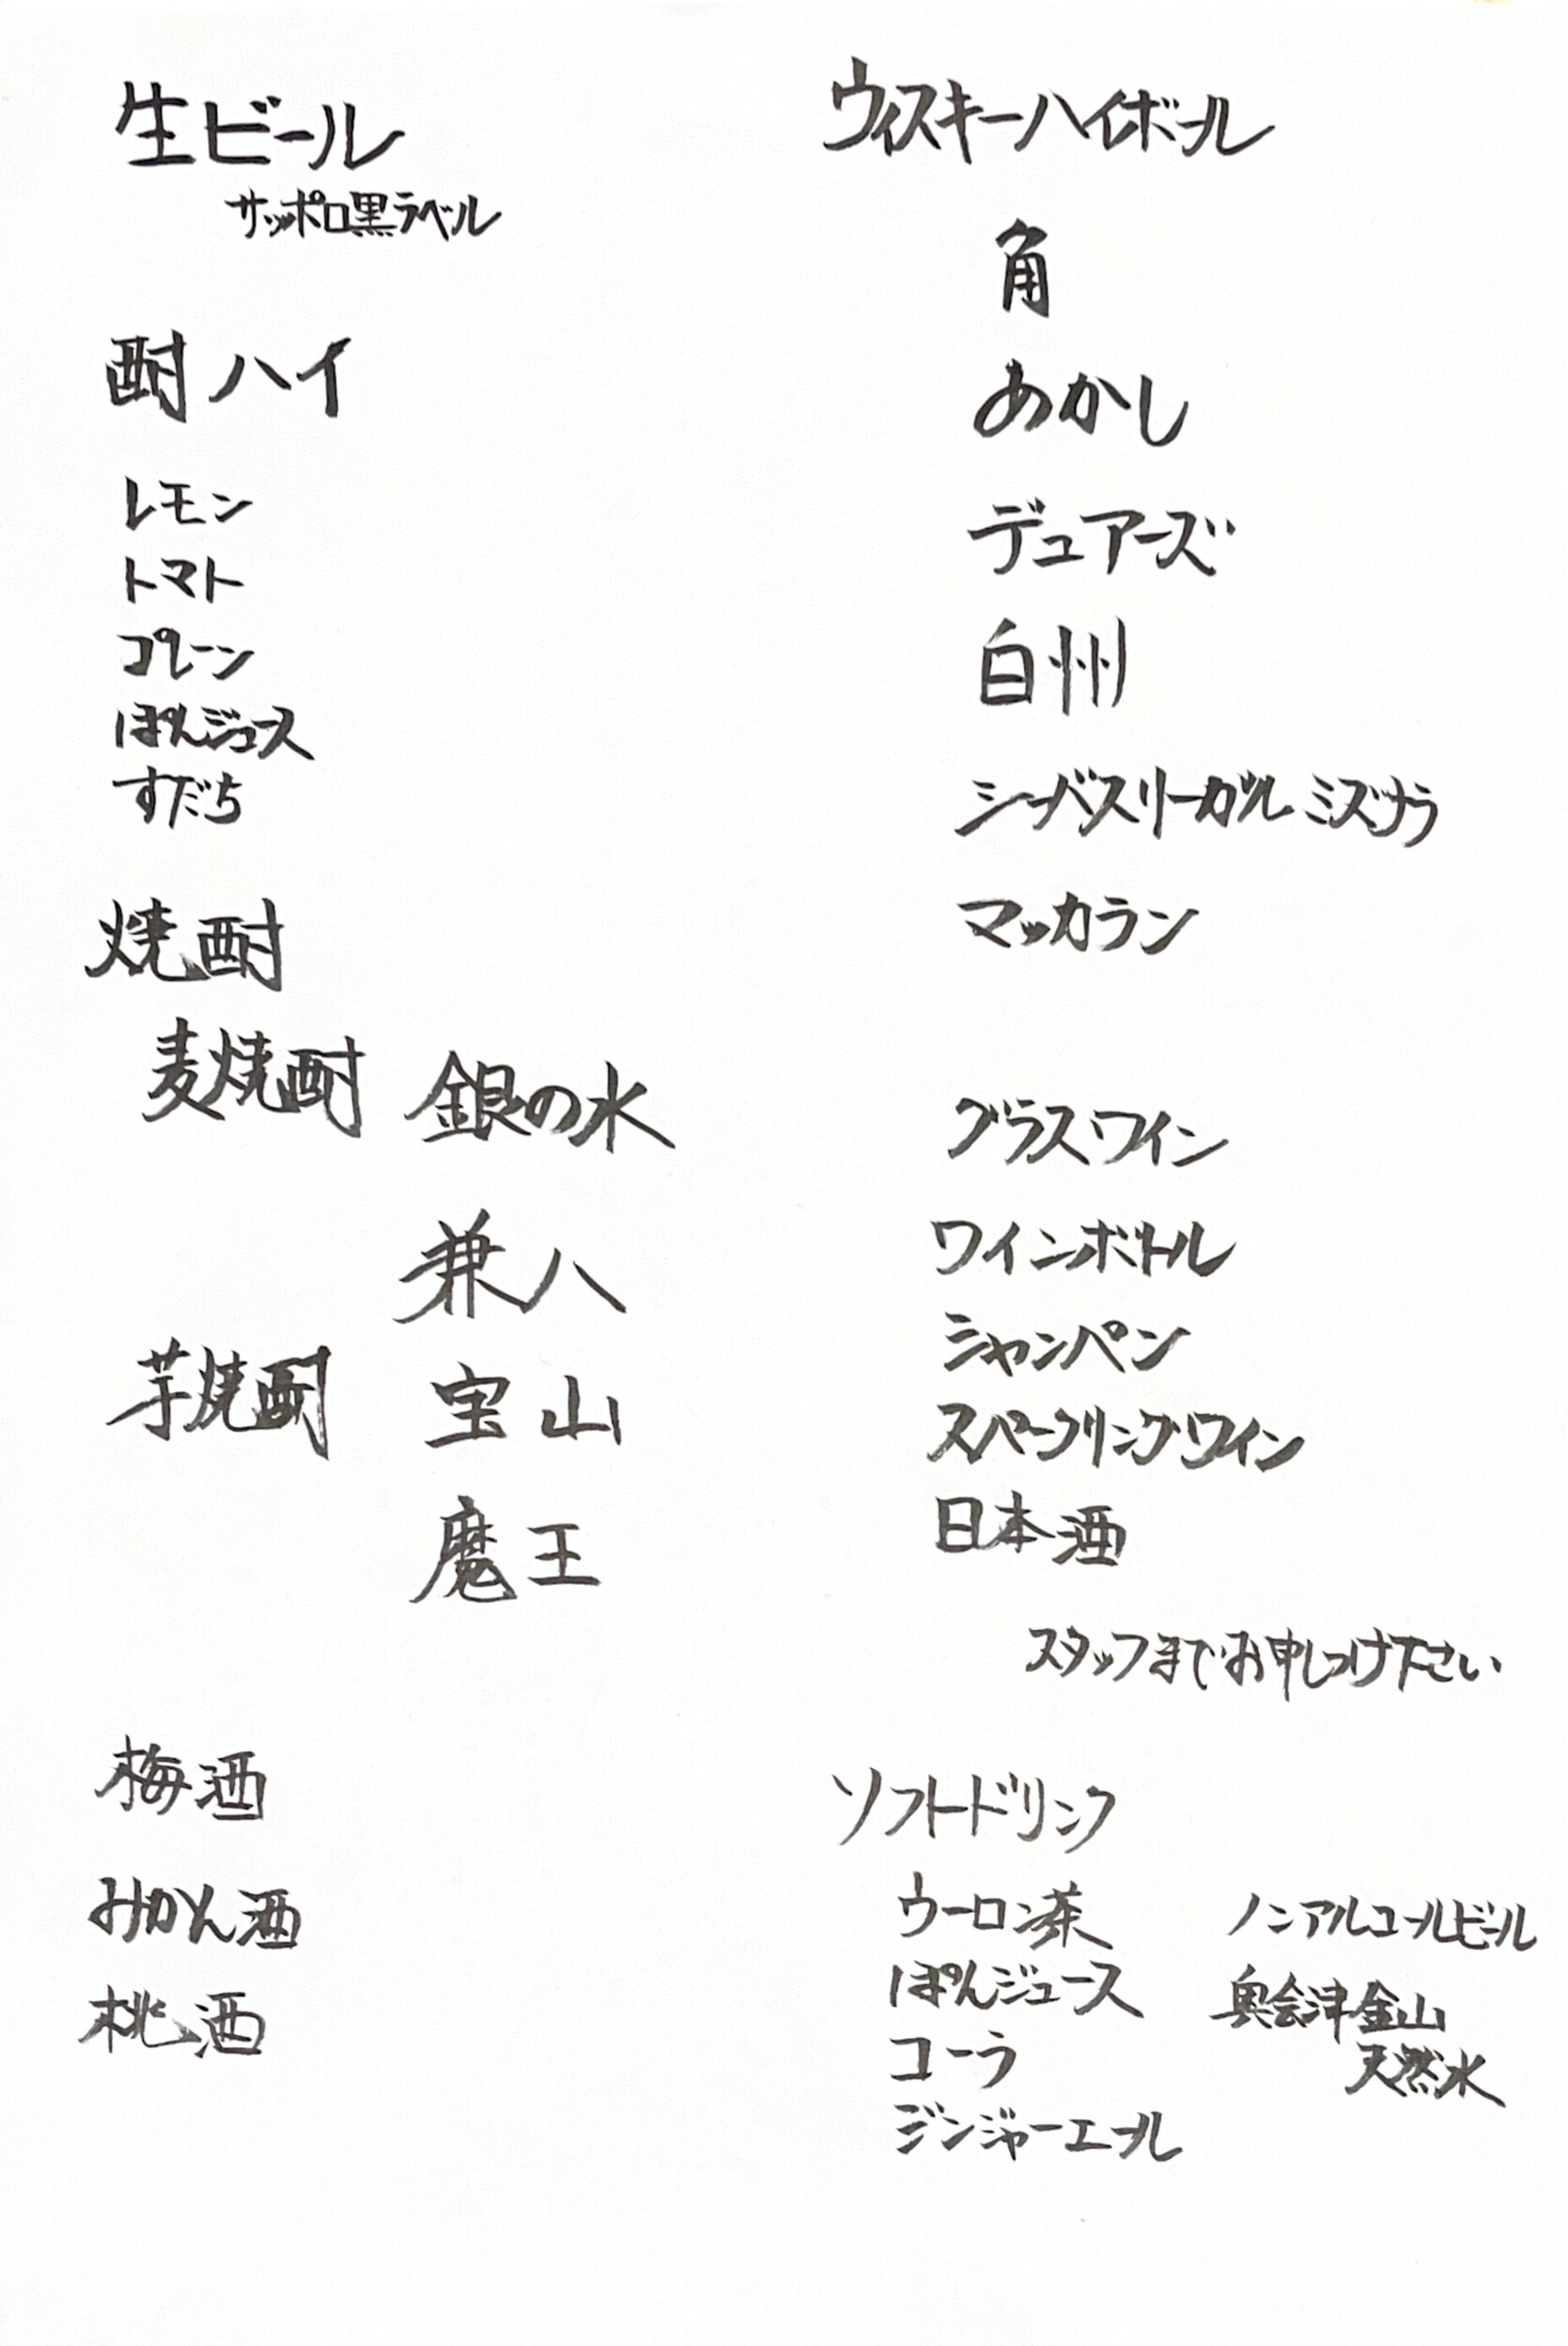 生ビール
サッポロ黒ラベル
酎ハイ
レモン
トマト
プレーン
ぽんジュース
すだち
焼酎
麦焼酎 銀の水
兼八
芋焼酎 宝山
魔王
梅酒
みかん酒
桃酒
ウィスキーハイボール
角
あかし
デュアーズ
白州
シーバスリーガル ミズナラ
マッカラン
グラスワイン
ワインボトル
シャンパン
スパークリングワイン
日本酒
スタッフまでお申しつけ下さい
ソフトドリンク
ウーロン茶 ノンアルコールビール
ぽんジュース 奥会津金山
コーラ 天然水
ジンジャーエール